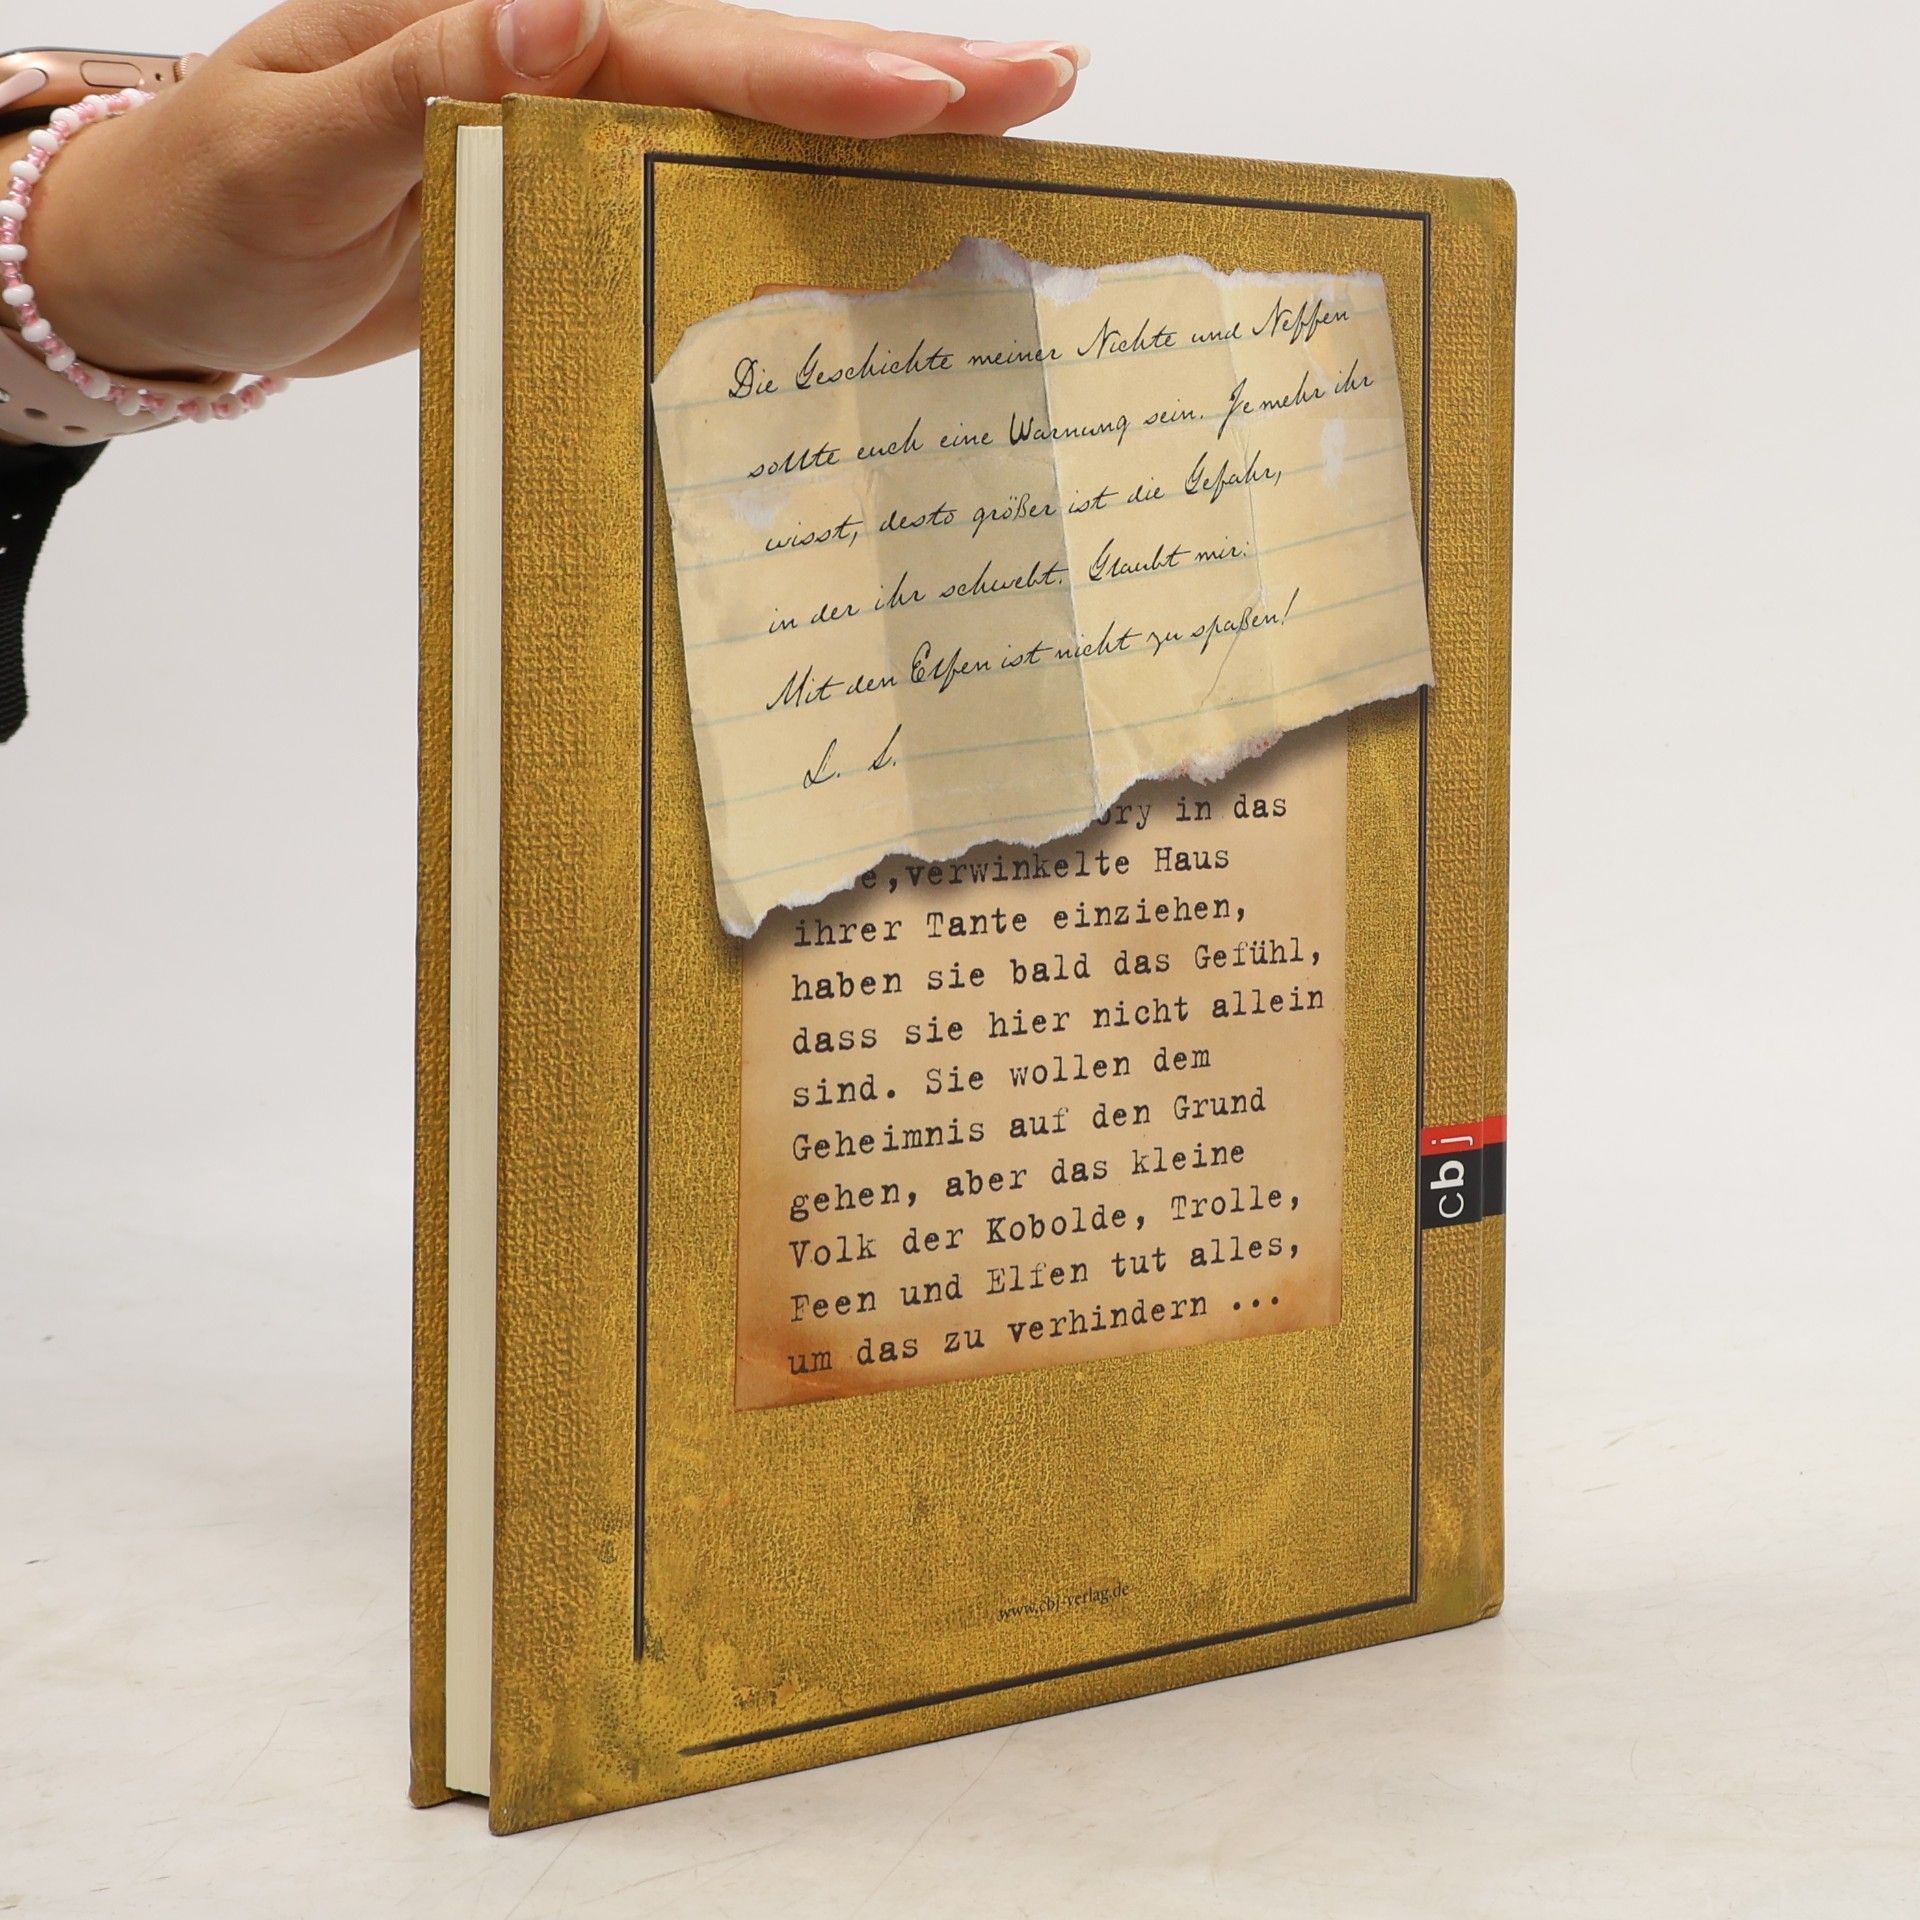 Die Geschichte meiner Nichte und Neffen
sollte euch eine Warnung sein. Je mehr ihr
wisst, desto größer ist die Gefahr,
in der ihr schwebt. Glaubt mir:
Mit den Elfen ist nicht zu spaßen!
L. L.
ory in das
e, verwinkelte Haus
ihrer Tante einziehen,
haben sie bald das Gefühl,
dass sie hier nicht allein
sind. Sie wollen dem
Geheimnis auf den Grund
gehen, aber das kleine
Volk der Kobolde, Trolle,
Feen und Elfen tut alles,
um das zu verhindern ...
cbj
www.cbj-verlag.de